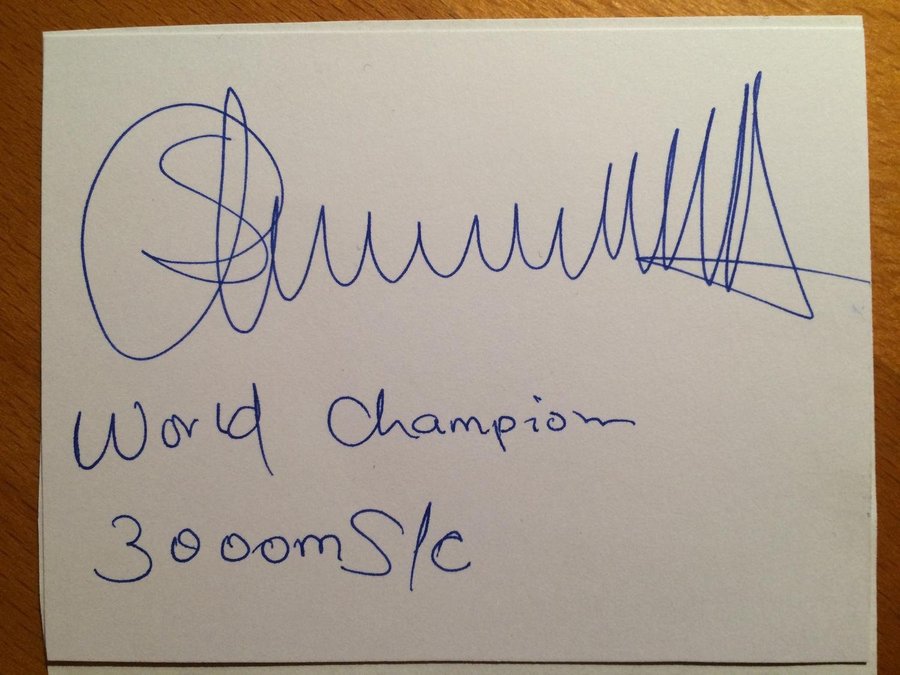 World Champion
3000m S/c